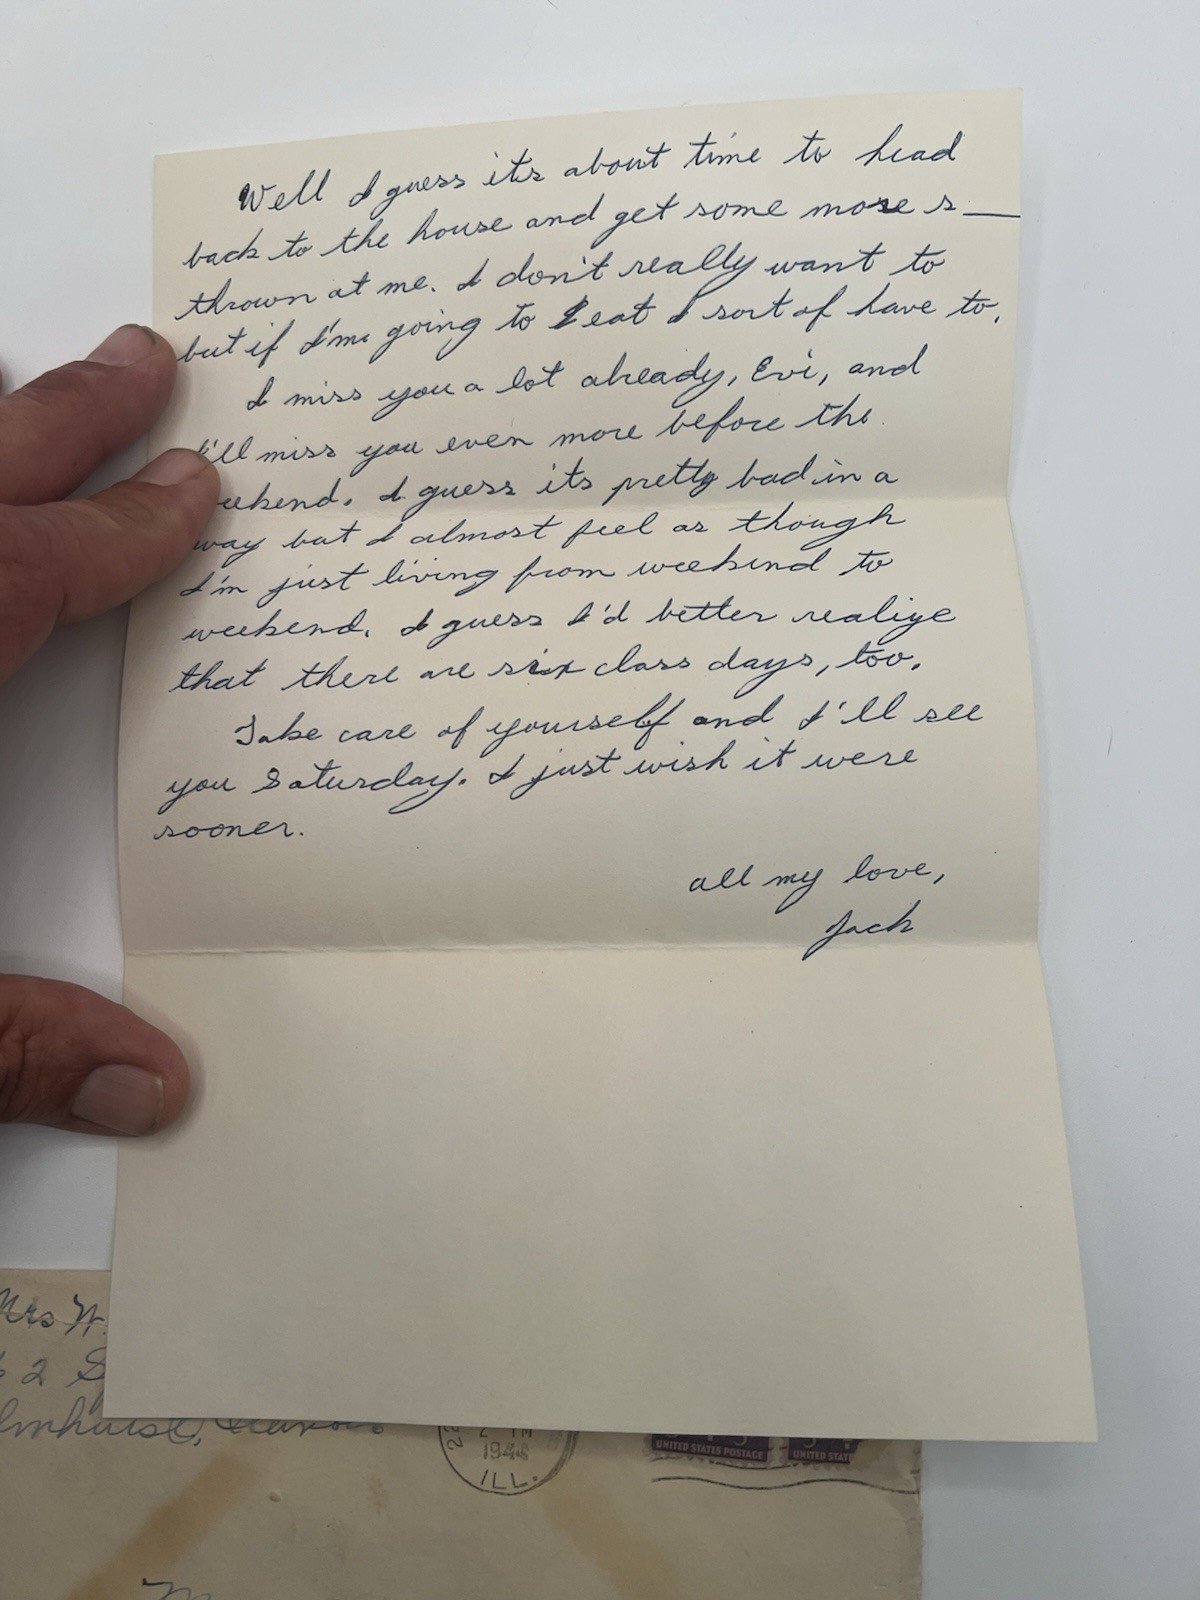 Well I guess its about time to head
back to the house and get some more s___
thrown at me. I don't really want to
but if I'm going to eat I sort of have to.
I miss you a lot already, Evi, and
I'll miss you even more before the
weekend. I guess its pretty bad in a
way but I almost feel as though
I'm just living from weekend to
weekend. I guess I'd better realize
that there are six class days, too.
Take care of yourself and I'll see
you Saturday. I just wish it were
sooner.
all my love,
Jack
Mrs W.
62 S
Elmhurst, Illinois
1944
ILL.
UNITED STATES POSTAGE
UNITED STAT